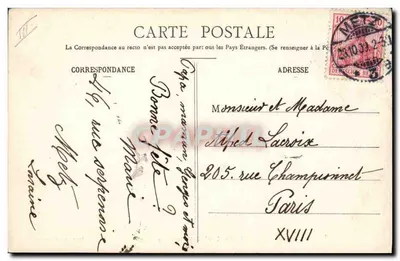 CARTE POSTALE
La Correspondance au recto n'est pas acceptée par tous les Pays Étrangers. (Se renseigner à la
CORRESPONDANCE
ADRESSE
METZ
Papa, maman, et moi
Bonne fête !
Marie
46, rue serpenoise
Metz
Lorraine
Monsieur et Madame
Alfred Lacroix
205, rue Championnet
Paris
XVIII